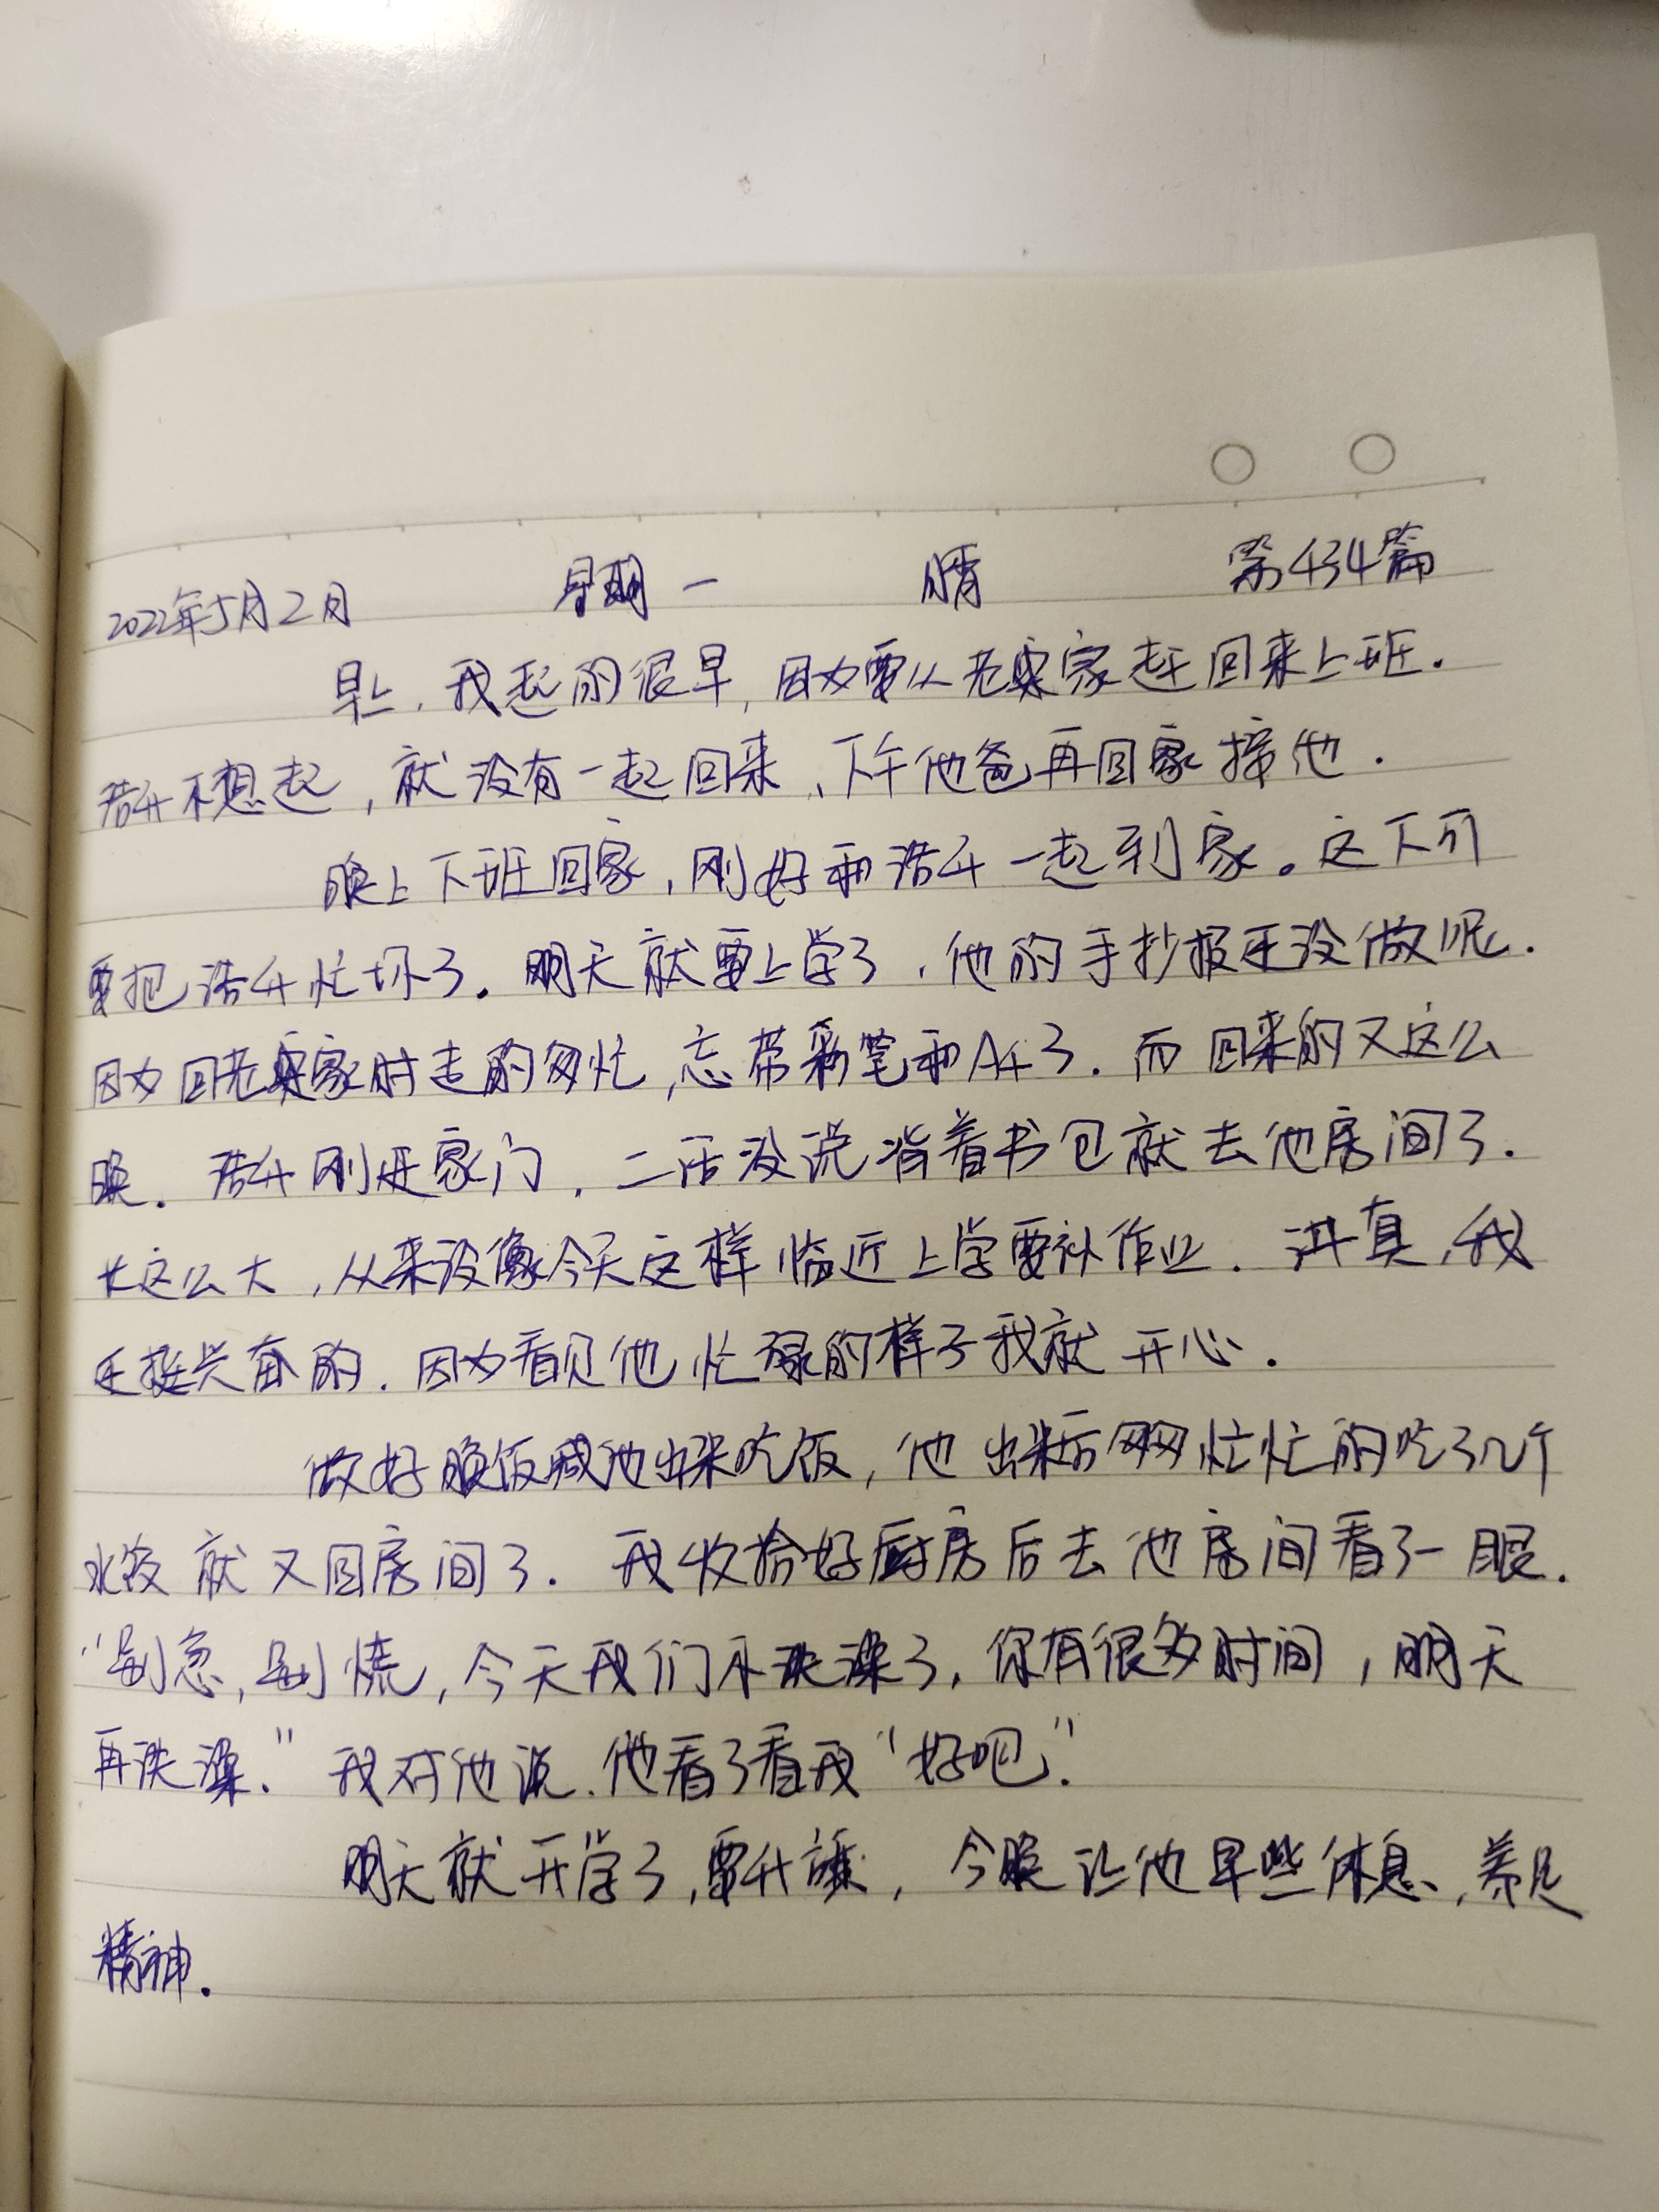 2022年5月2日 星期一 晴 第434篇
早上,我起的很早,因为要从老窦家赶回来上班.
浩升不想起,就没有一起回来、下午他爸再回家接他.
晚上下班回家,刚好和浩升一起到家。这下可
要把浩升忙坏了.明天就要上学了,他的手抄报还没做呢.
因为回老窦家时走的匆忙,忘带彩笔和A4了.而回来的又这么
晚.浩升刚进家门,二话没说背着书包就去他房间了.
长这么大,从来没像今天这样临近上学要补作业.讲真,我
还挺兴奋的.因为看见他忙碌的样子我就开心.
做好晚饭喊他出来吃饭,他出来后匆匆忙忙的吃了几个
水饺就又回房间了.我收拾好厨房后去他房间看了一眼.
“别急,别慌,今天我们不洗澡了,你有很多时间,明天
再洗澡.”我对他说.他看了看我“好吧”.
明天就开学了,要升旗,今晚让他早些休息,养足
精神.